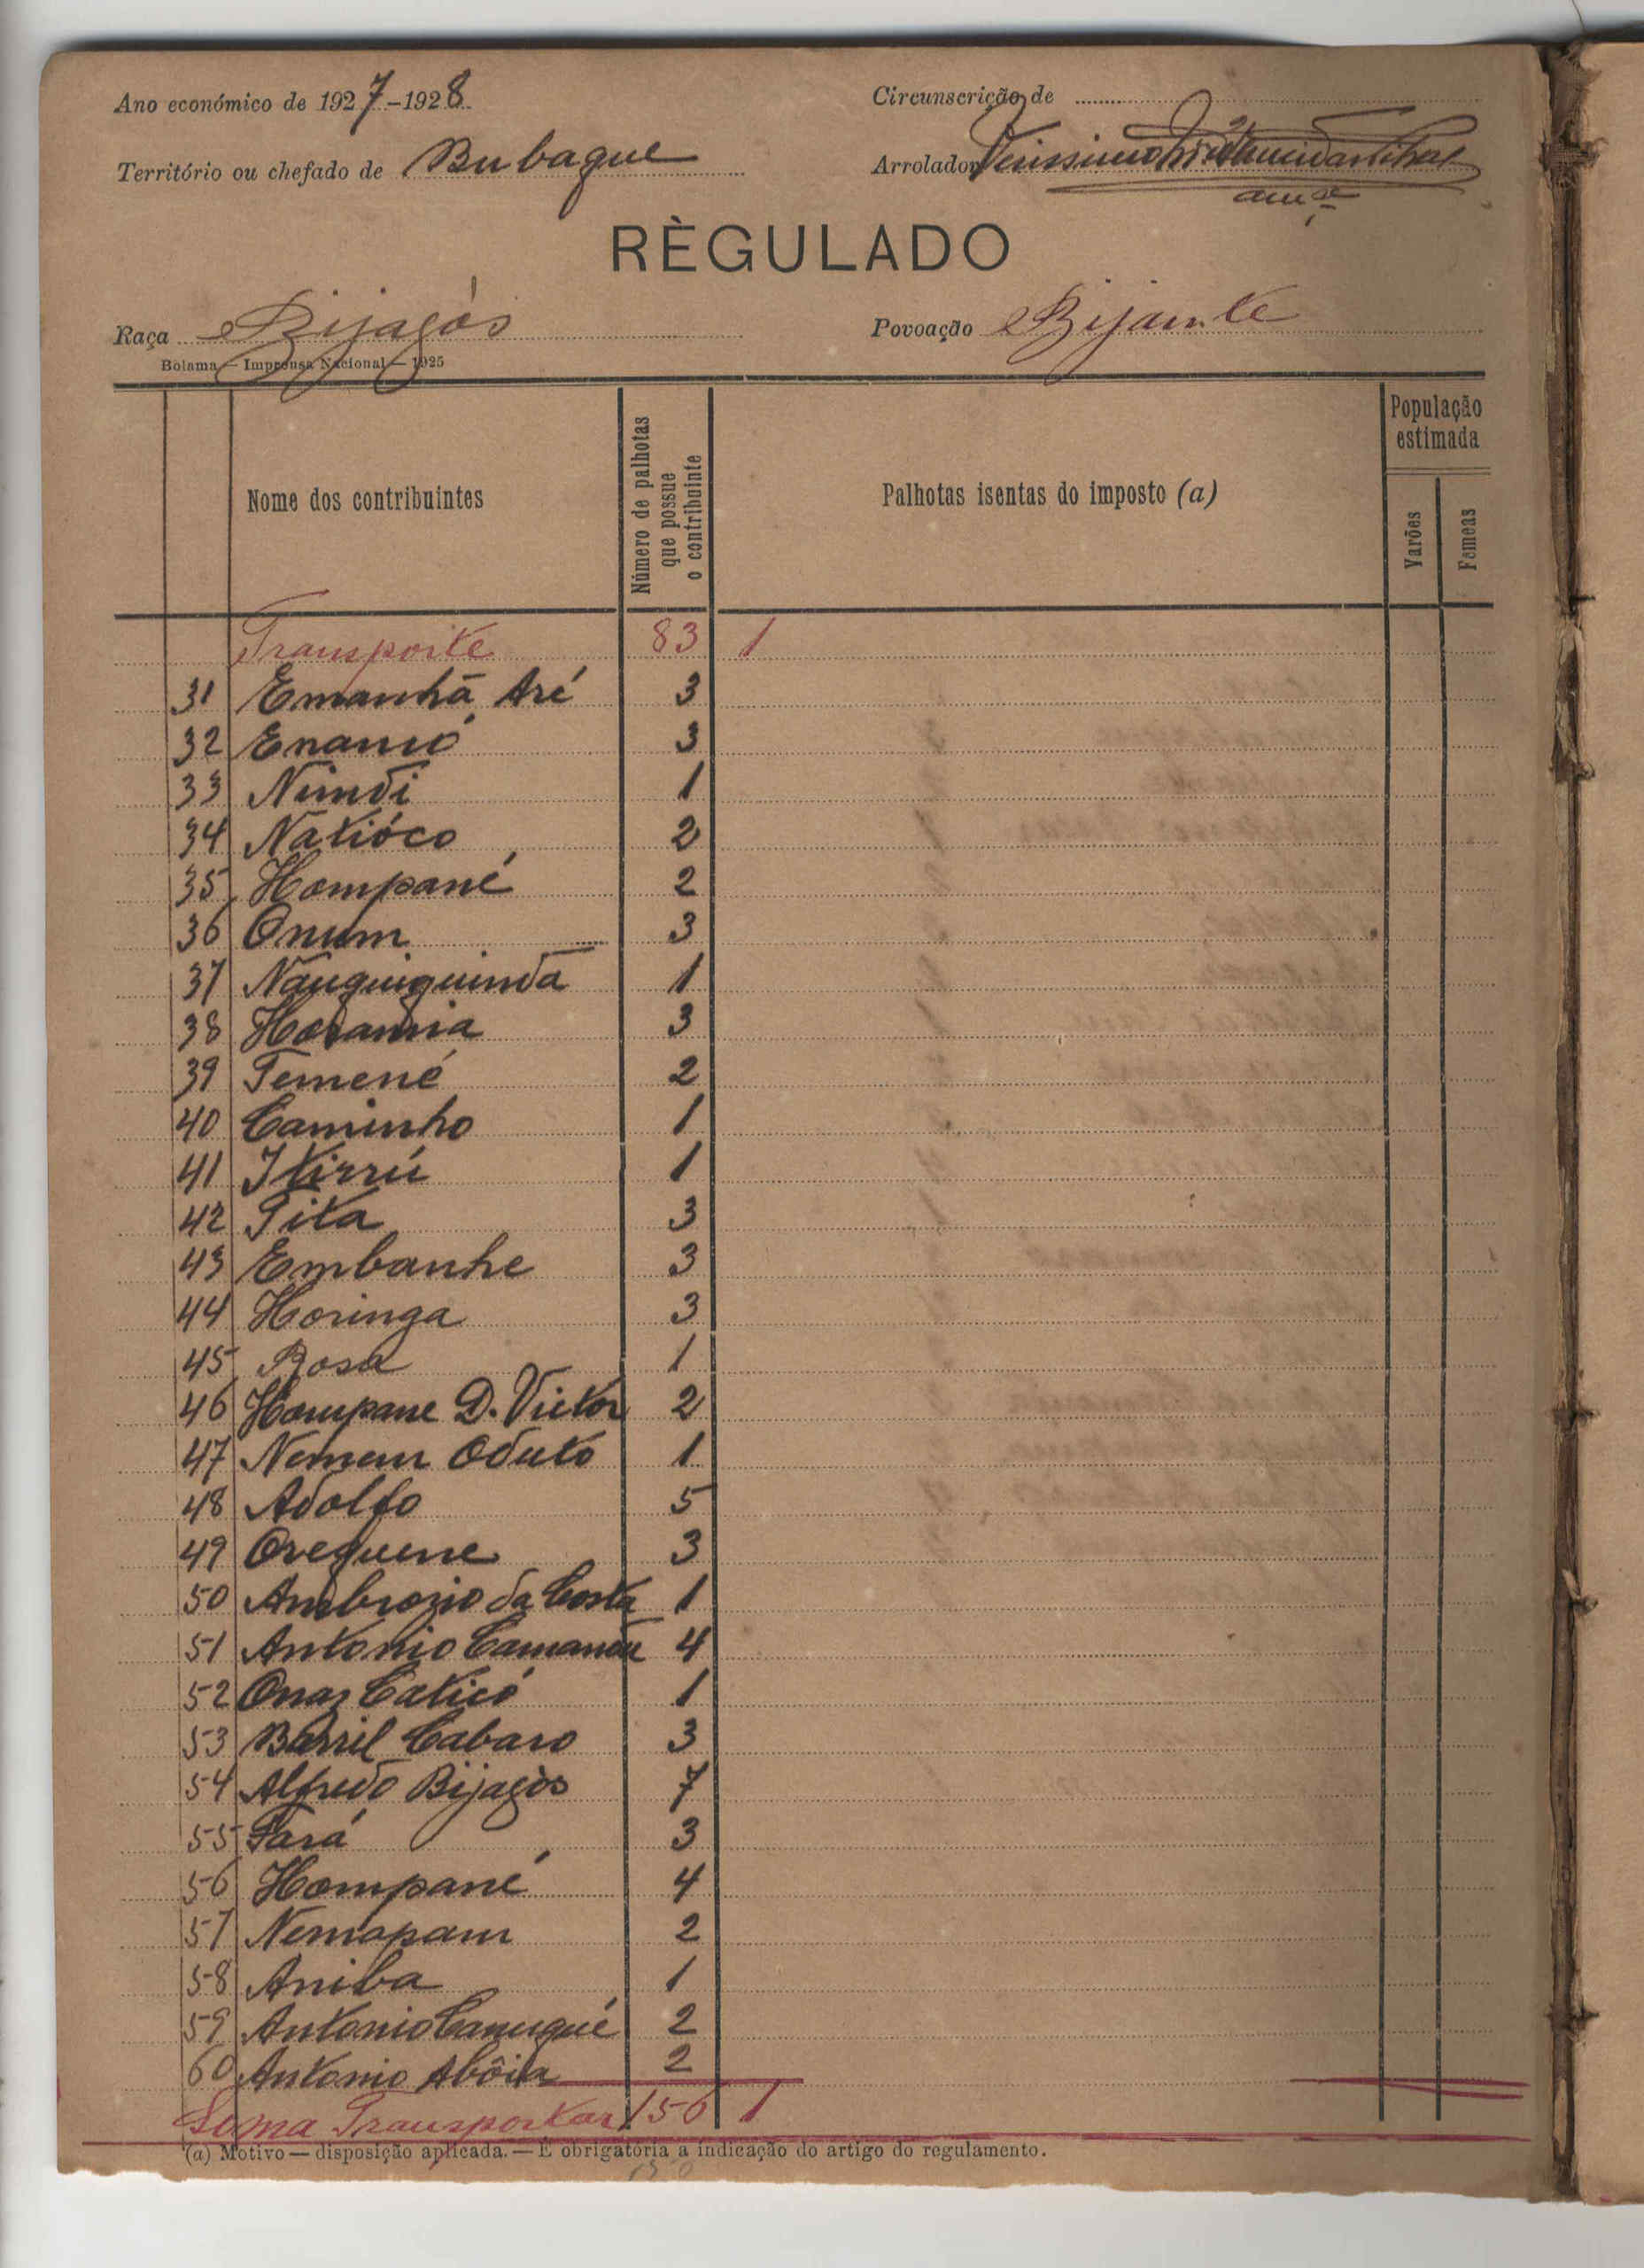 Ano económico de 1927-1928
Circunscrição de
Território ou chefado de Bubaque
Arrolador Verissimo
RÈGULADO
Raça Bijagós
Povoação Bijante
Bolama — Imprensa Nacional — 1925
Nome dos contribuintes
Número de palhotas que possue o contribuinte
Palhotas isentas do imposto (a)
População estimada
Varões
Femeas
Transporte 83 1
31 Emanhã Aré 3
32 Enamió 3
33 Nimdi 1
34 Natióco 2
35 Hompané 2
36 Onum 3
37 Nauguiguinda 1
38 3
39 Temené 2
40 Caminho 1
41 Itirrú 1
42 Tita 3
43 Embanhe 3
44 Horinga 3
45 Rosa 1
46 Hompane D. Victor 2
47 Nemem Oduto 1
48 Adolfo 5
49 Oreguene 3
50 Ambrozio da Costa 1
51 Antonio 4
52 Caticó 1
53 Barril Cabaro 3
54 Alfredo Bijagós 7
55 Tará 3
56 Hompané 4
57 Nemopam 2
58 Aniba 1
59 Antonio Canugué 2
60 Antonio Abôia 2
Soma Transportar 156 1
(a) Motivo — disposição aplicada. — É obrigatória a indicação do artigo do regulamento.